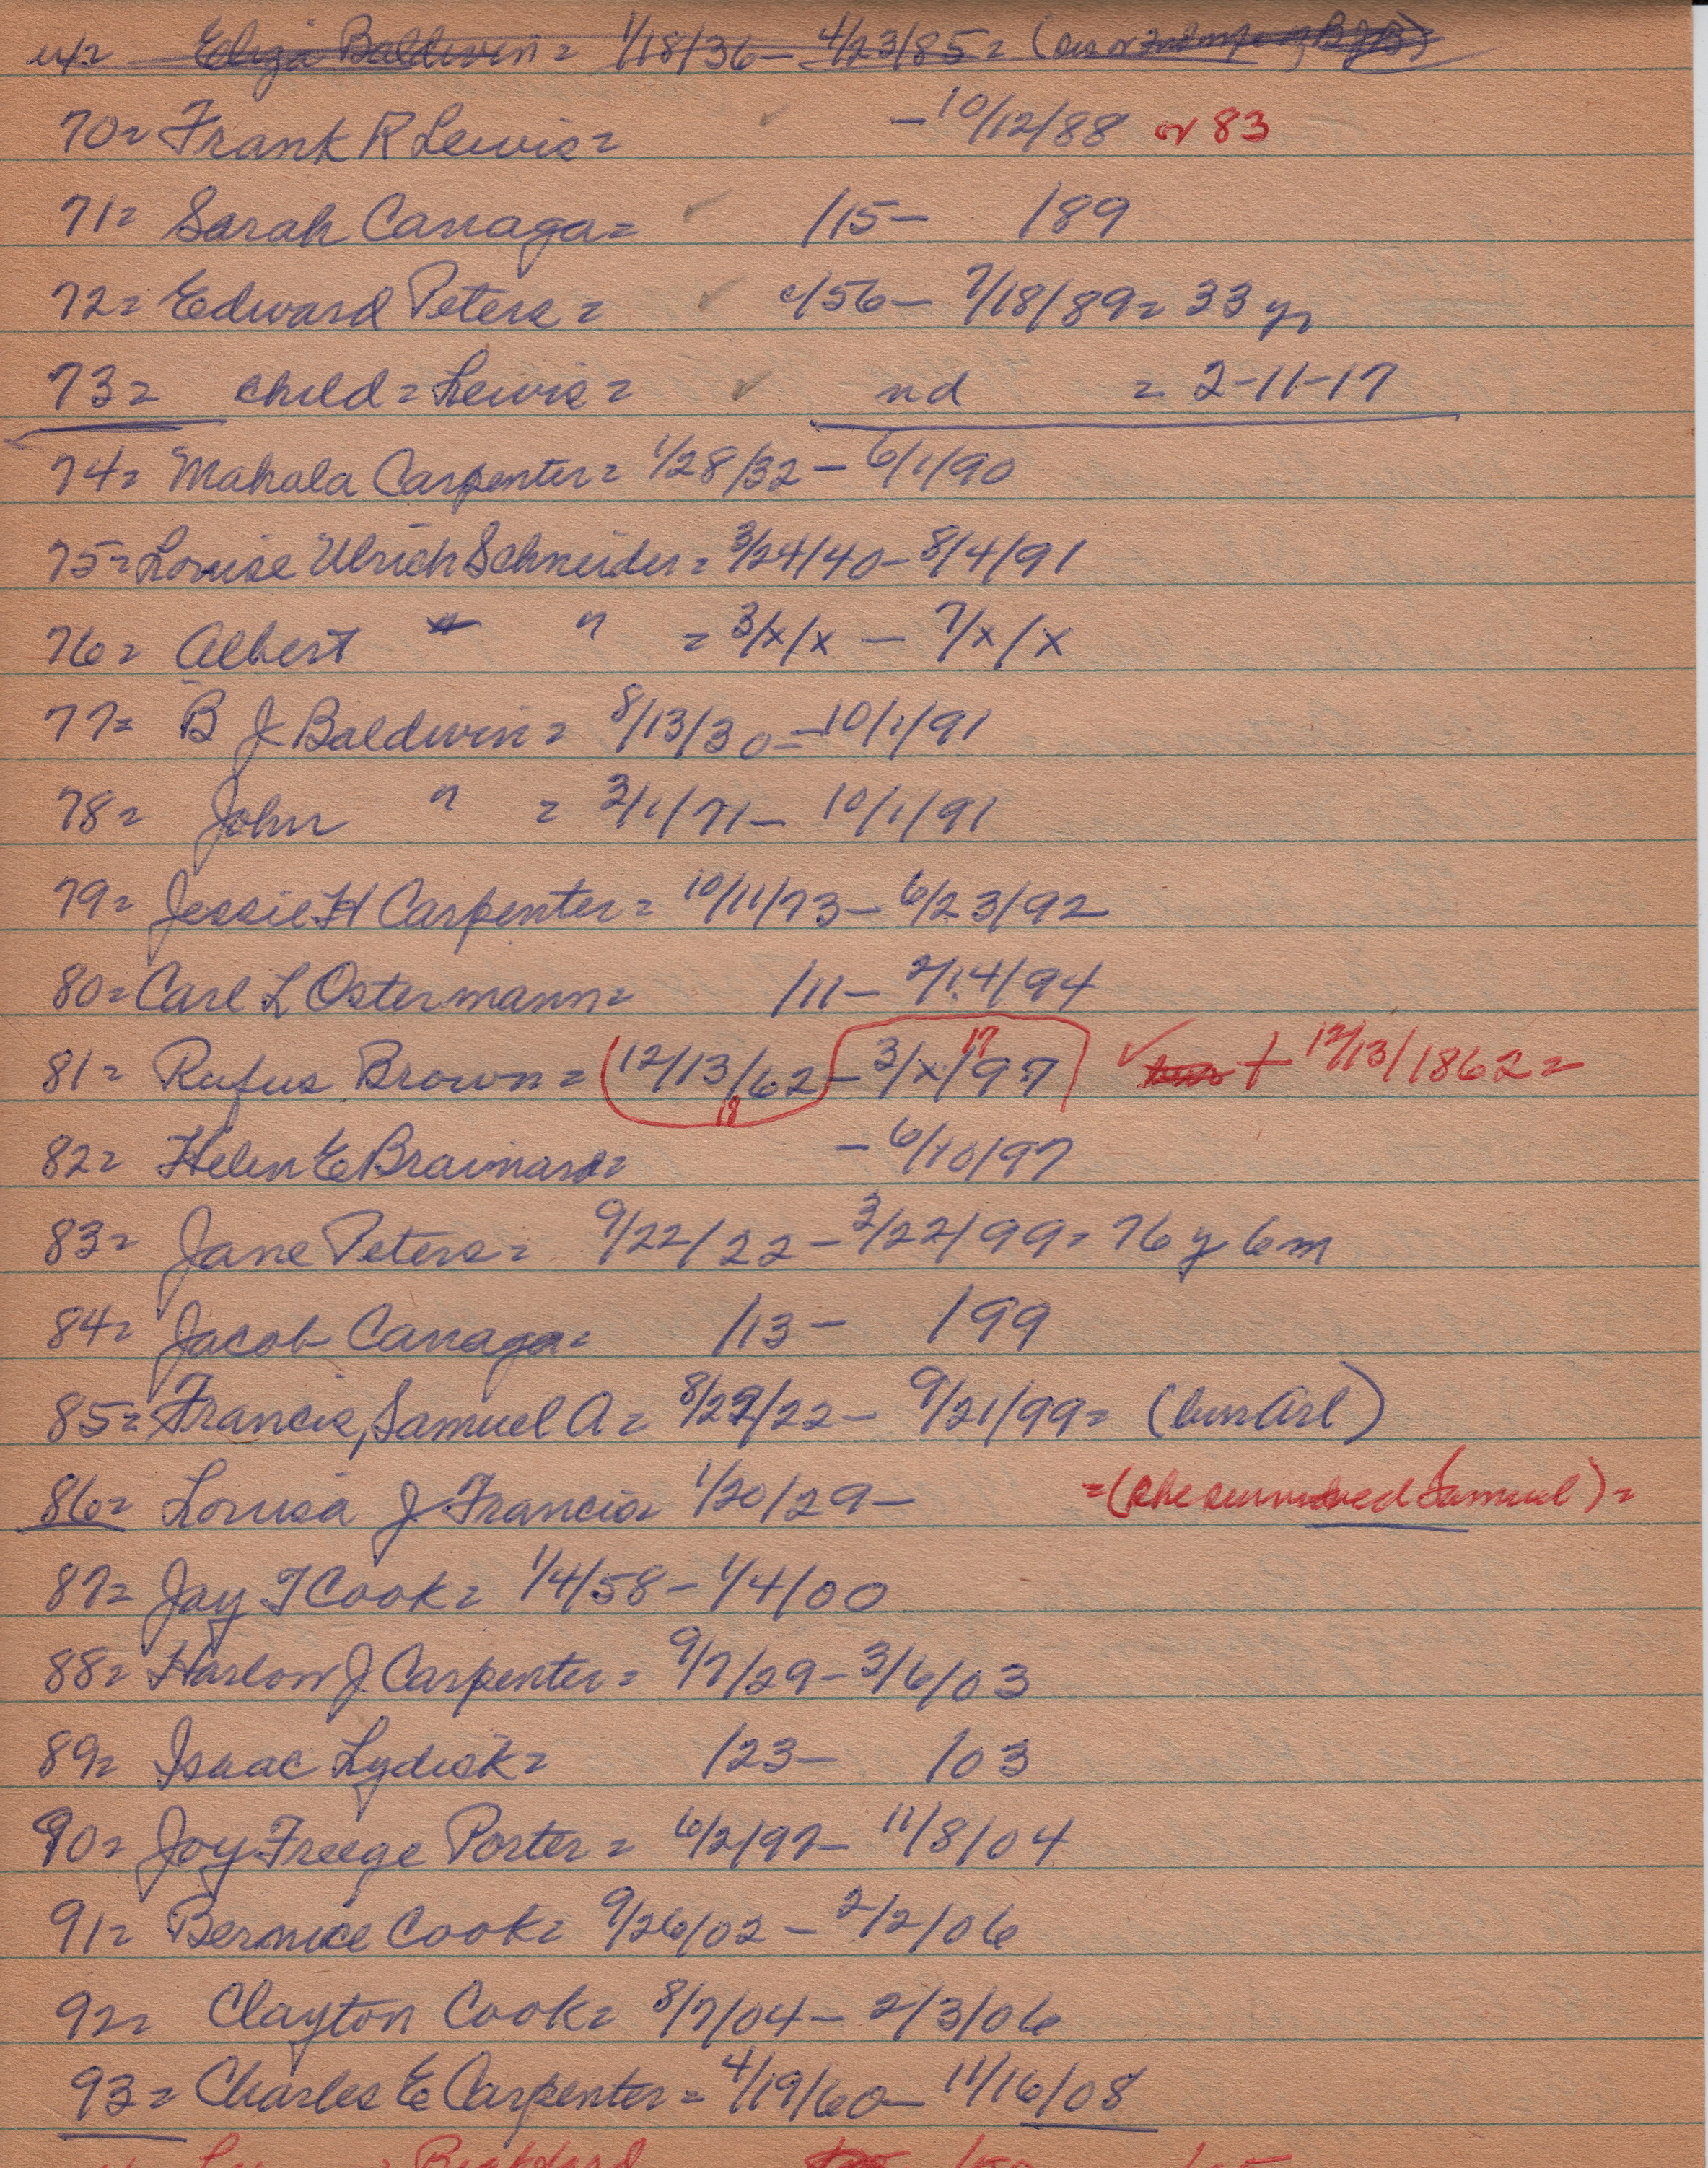 Eliza Baldwin = 1/18/36 - 4/23/85 =
70 = Frank R Lewis = ✓ - 10/12/88 or 83
71 = Sarah Canaga = ✓ /15 - /89
72 = Edward Peters = ✓ c/56 - 7/18/89 = 33 y,
73 = child = Lewis = ✓ nd = 2-11-17
74 = Mahala Carpenter = 1/28/32 - 6/1/90
75 = Louise Ulrich Schneider = 3/24/40 - 8/4/91
76 = Albert " = 3/x/x - 7/x/x
77 = B J Baldwin = 8/13/30 = - 10/1/91
78 = John " = 3/1/71 - 10/1/91
79 = Jessie H Carpenter = 10/11/73 - 6/23/92
80 = Carl L Ostermann = /11 - 2/14/94
81 = Rufus Brown = (12/13/62 - 3/x/97 17 18 ✓ + 12/13/1862 =
82 = Helen E Brainard = - 6/10/97
83 = Jane Peters = 9/22/22 - 3/22/99 = 76 y 6 m
84 = Jacob Canaga = /13 - /99
85 = Francis, Samuel A = 8/29/22 - 9/21/99 = (bur Arl)
86 = Louisa J Francis = 1/20/29 - = (she survived Samuel) =
87 = Jay T Cook = 1/4/58 - 1/4/00
88 = Harlow J. Carpenter = 9/7/29 - 3/6/03
89 = Isaac Lydick = /23 - /03
90 = Joy Freege Porter = 6/2/97 - 11/8/04
91 = Bernice Cook = 9/26/02 - 2/2/06
92 = Clayton Cook = 8/7/04 - 2/3/06
93 = Charles E Carpenter = 4/19/60 - 11/16/08